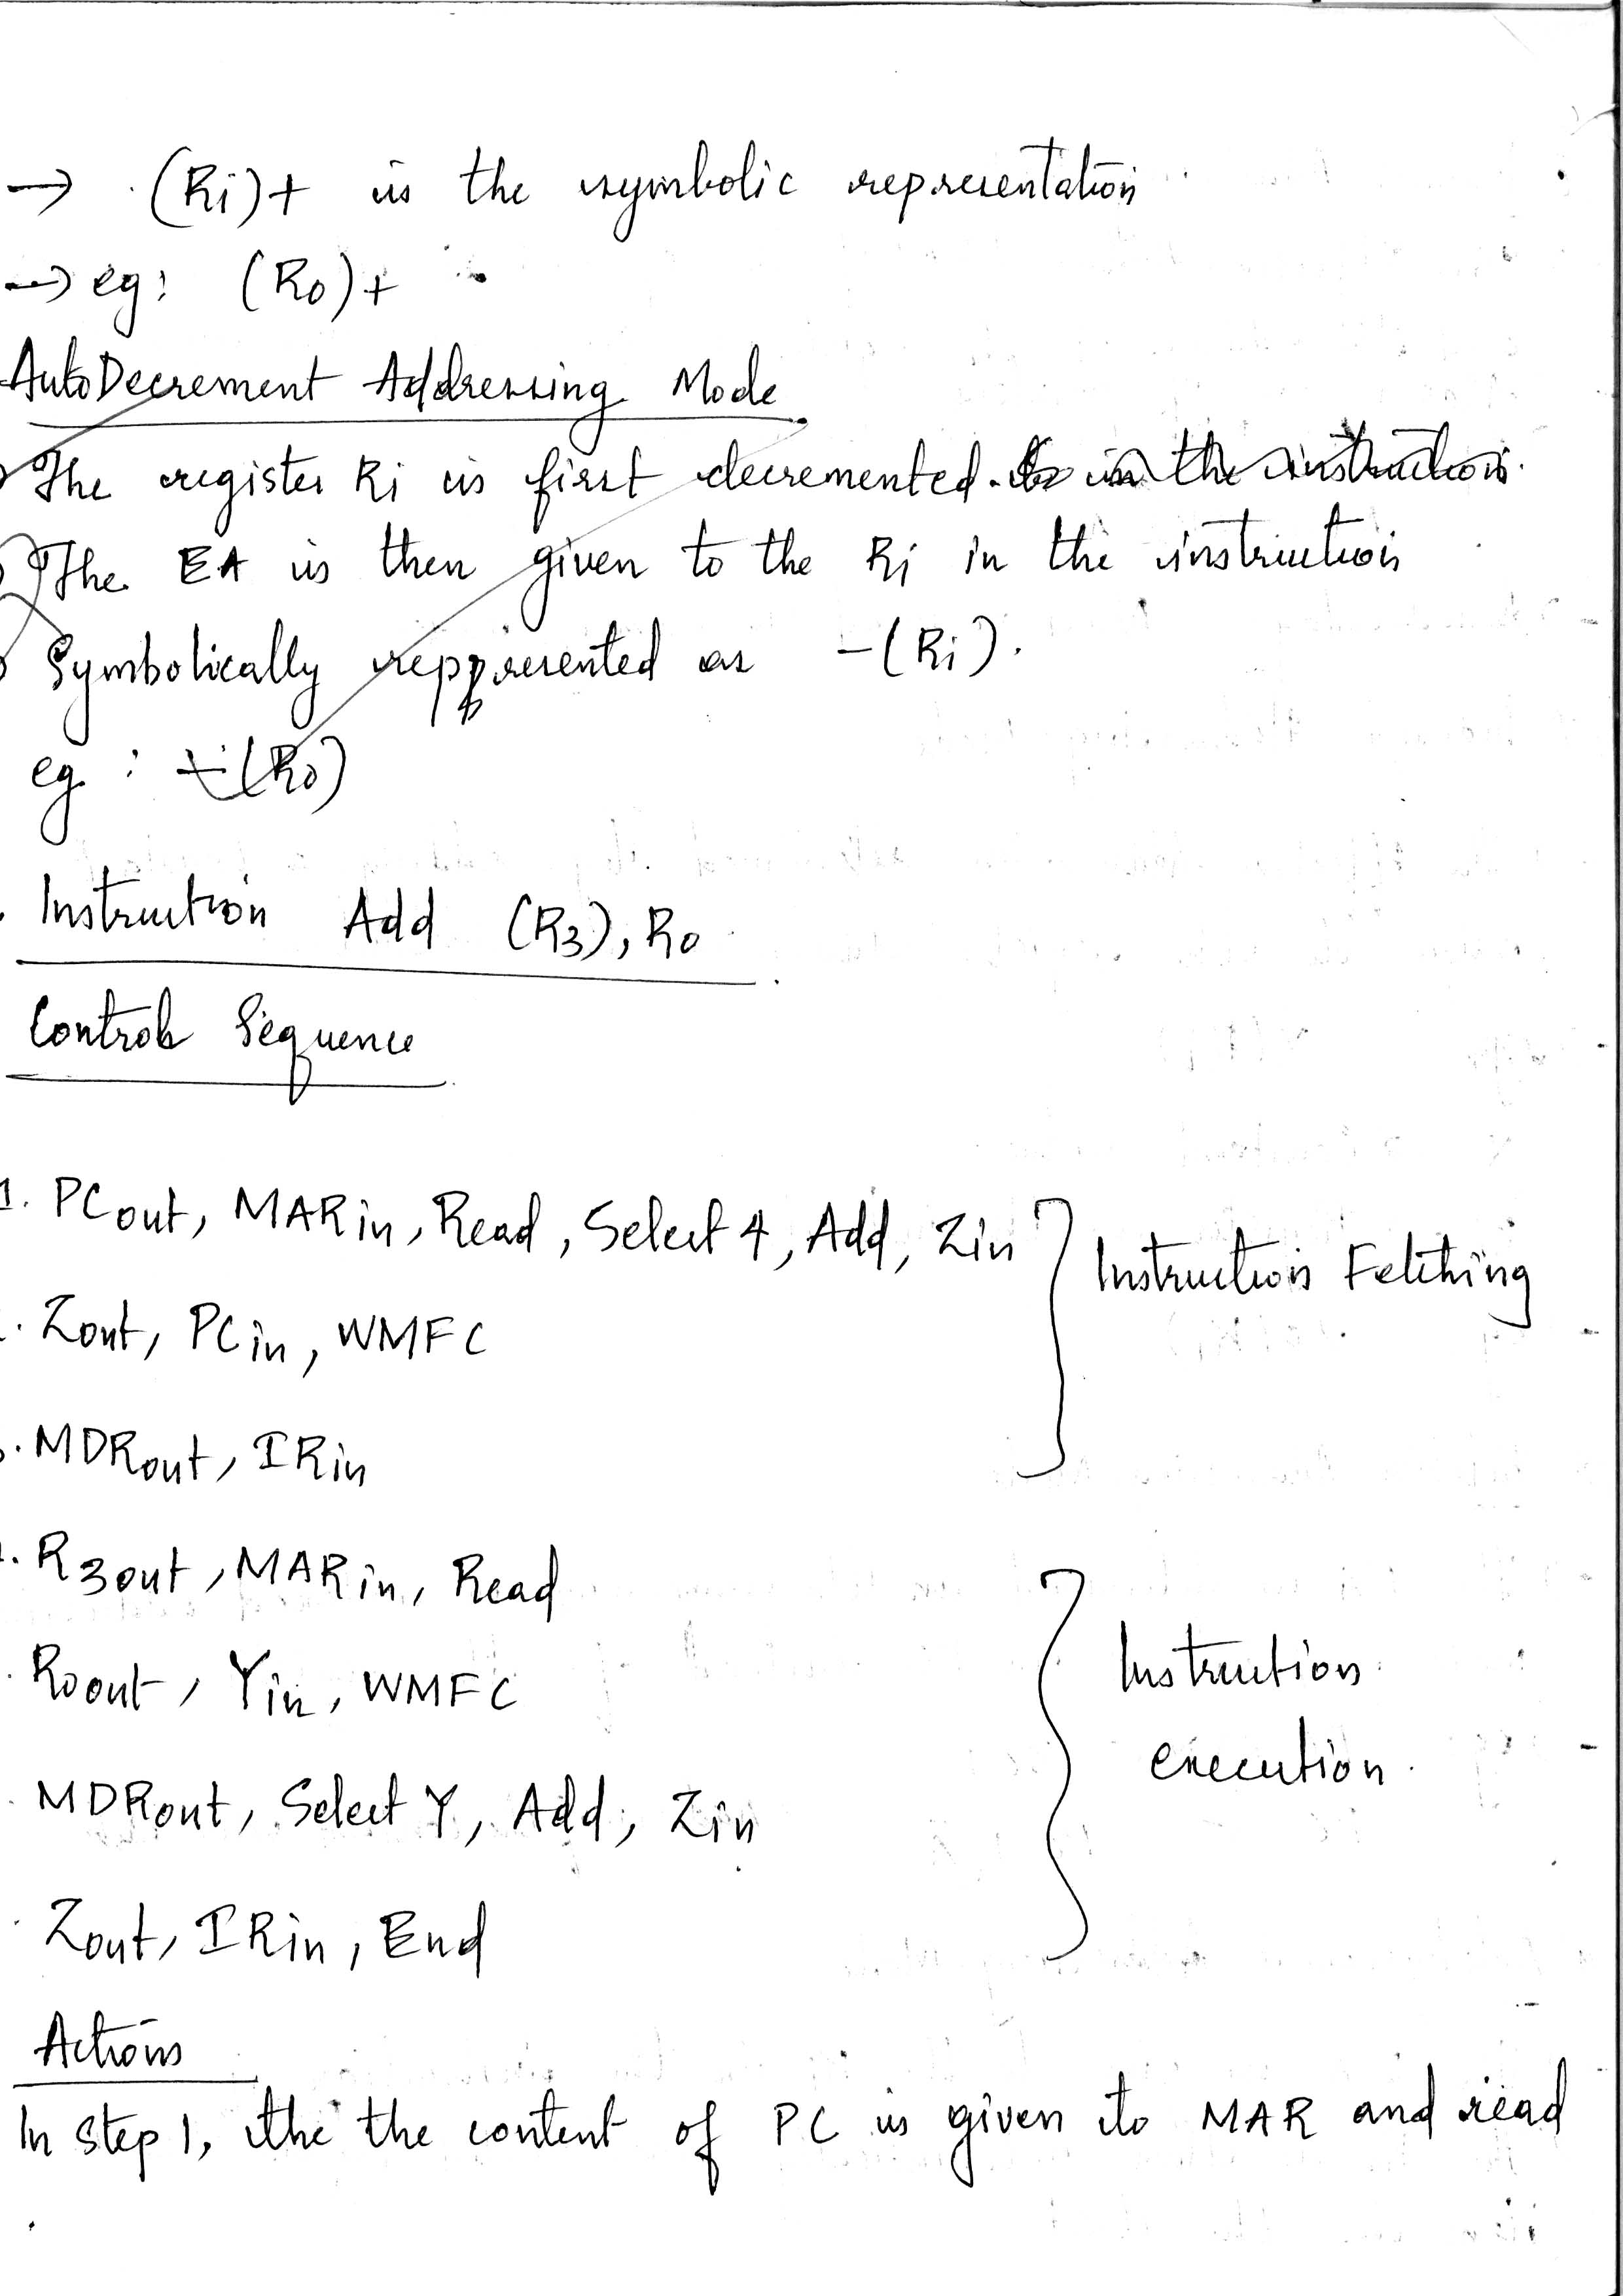 → (Ri)+ is the symbolic representation
→ eg: (R0)+
AutoDecrement Addressing Mode
The register Ri is first decremented. in the instruction.
The EA is then given to the Ri in the instruction
Symbolically reppresented as -(Ri).
eg : -(R0)
Instruction Add (R3), R0
Control Sequence
1. PCout, MARin, Read, Select 4, Add, Zin
Instruction Fetching
. Zout, PCin, WMFC
. MDRout, IRin
. R3out, MARin, Read
. R0out, Yin, WMFC
Instruction
execution.
. MDRout, Select Y, Add, Zin
. Zout, IRin, End
Actions
In step 1, the the content of PC is given to MAR and read